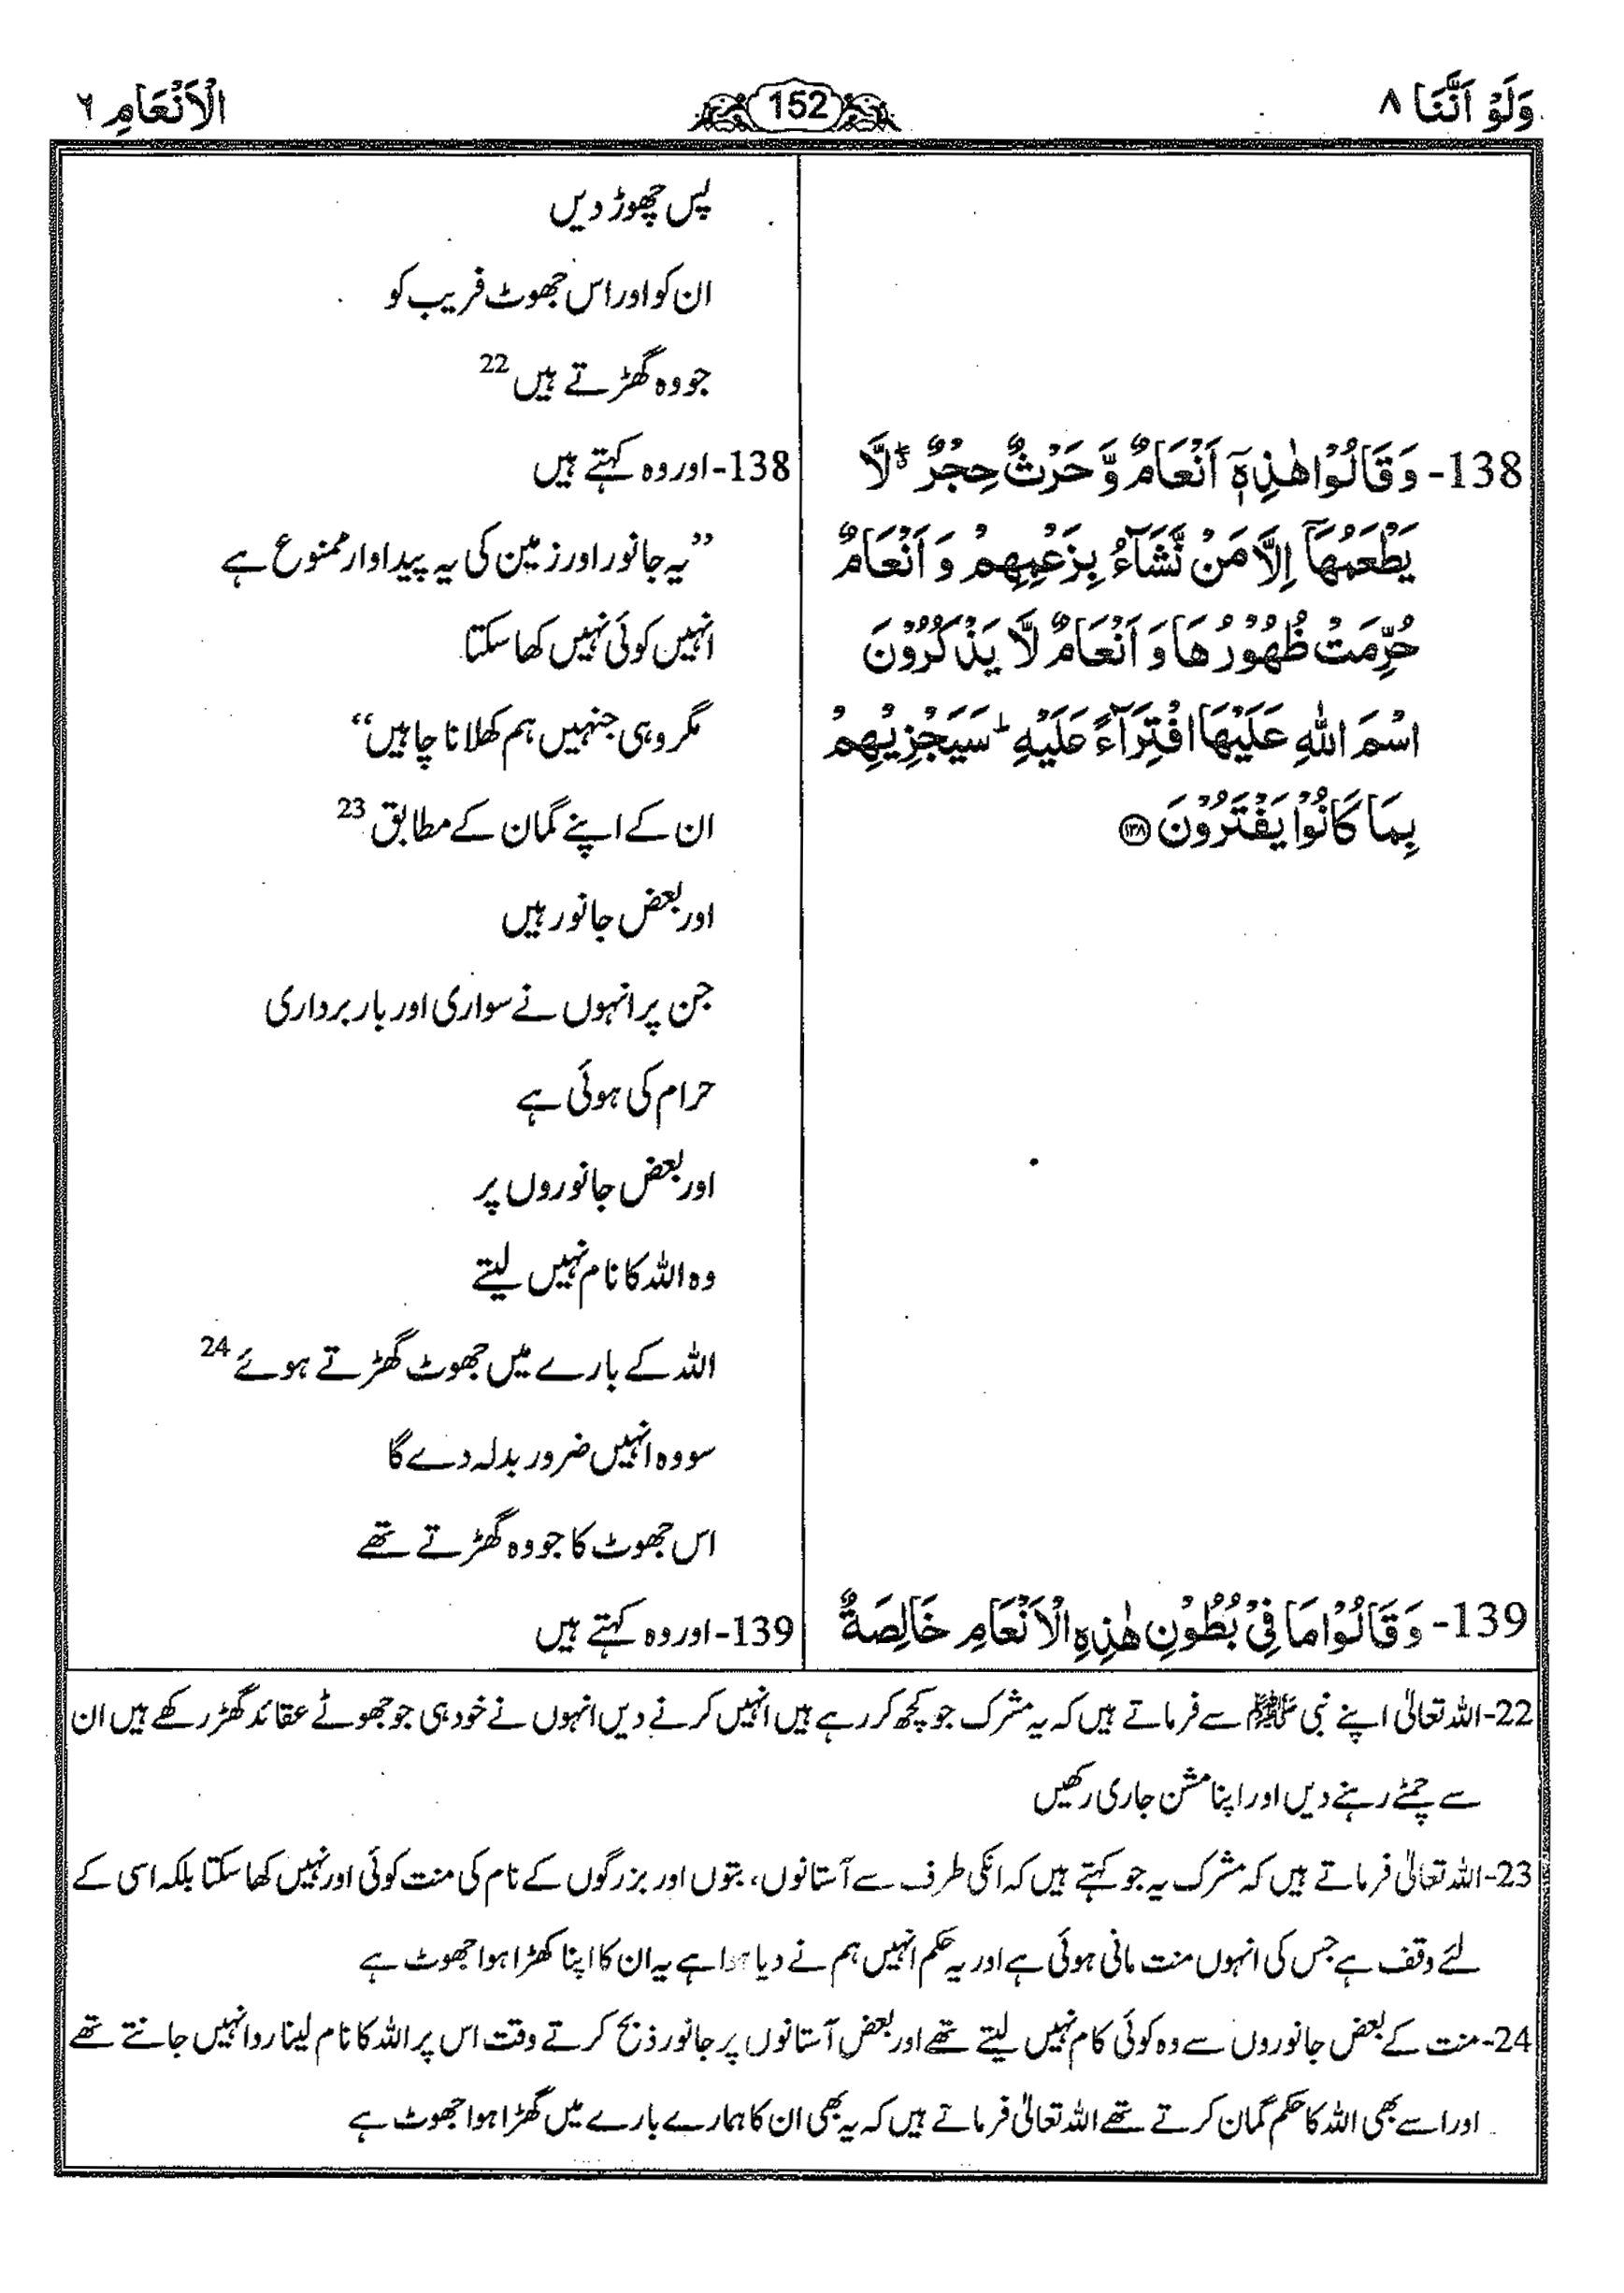 وَلَوْ اَنَّنَا ۸
152
الْاَنْعَامِ ۶
پس چھوڑ دیں
ان کو اور اس جھوٹ فریب کو
جو وہ گھڑتے ہیں 22
138- وَ قَالُوْا هٰذِهٖۤ اَنْعَامٌ وَّ حَرْثٌ حِجْرٌ ۖۗ لَّا
یَطْعَمُهَاۤ اِلَّا مَنْ نَّشَآءُ بِزَعْمِهِمْ وَ اَنْعَامٌ
حُرِّمَتْ ظُهُوْرُهَا وَ اَنْعَامٌ لَّا یَذْكُرُوْنَ
اسْمَ اللّٰهِ عَلَیْهَا افْتِرَآءً عَلَیْهِ ؕ سَیَجْزِیْهِمْ
بِمَا كَانُوْا یَفْتَرُوْنَ ۝۱۳۸
138- اور وہ کہتے ہیں
”یہ جانور اور زمین کی یہ پیداوار ممنوع ہے
انہیں کوئی نہیں کھا سکتا
مگر وہی جنہیں ہم کھلانا چاہیں“
ان کے اپنے گمان کے مطابق 23
اور بعض جانور ہیں
جن پر انہوں نے سواری اور بار برداری
حرام کی ہوئی ہے
اور بعض جانوروں پر
وہ اللہ کا نام نہیں لیتے
اللہ کے بارے میں جھوٹ گھڑتے ہوئے 24
سو وہ انہیں ضرور بدلہ دے گا
اس جھوٹ کا جو وہ گھڑتے تھے
139- وَ قَالُوْا مَا فِیْ بُطُوْنِ هٰذِهِ الْاَنْعَامِ خَالِصَةٌ
139- اور وہ کہتے ہیں
22- اللہ تعالیٰ اپنے نبی ﷺ سے فرماتے ہیں کہ یہ مشرک جو کچھ کر رہے ہیں انہیں کرنے دیں انہوں نے خود ہی جو جھوٹے عقائد گھڑ رکھے ہیں ان
سے چمٹے رہنے دیں اور اپنا مشن جاری رکھیں
23- اللہ تعالیٰ فرماتے ہیں کہ مشرک یہ جو کہتے ہیں کہ انکی طرف سے آستانوں، بتوں اور بزرگوں کے نام کی منت کوئی اور نہیں کھا سکتا بلکہ اسی کے
لئے وقف ہے جس کی انہوں منت مانی ہوئی ہے اور یہ حکم انہیں ہم نے دیا ہوا ہے یہ ان کا اپنا گھڑا ہوا جھوٹ ہے
24- منت کے بعض جانوروں سے وہ کوئی کام نہیں لیتے تھے اور بعض آستانوں پر جانور ذبح کرتے وقت اس پر اللہ کا نام لینا روا نہیں جانتے تھے
اور اسے بھی اللہ کا حکم گمان کرتے تھے اللہ تعالیٰ فرماتے ہیں کہ یہ بھی ان کا ہمارے بارے میں گھڑا ہوا جھوٹ ہے